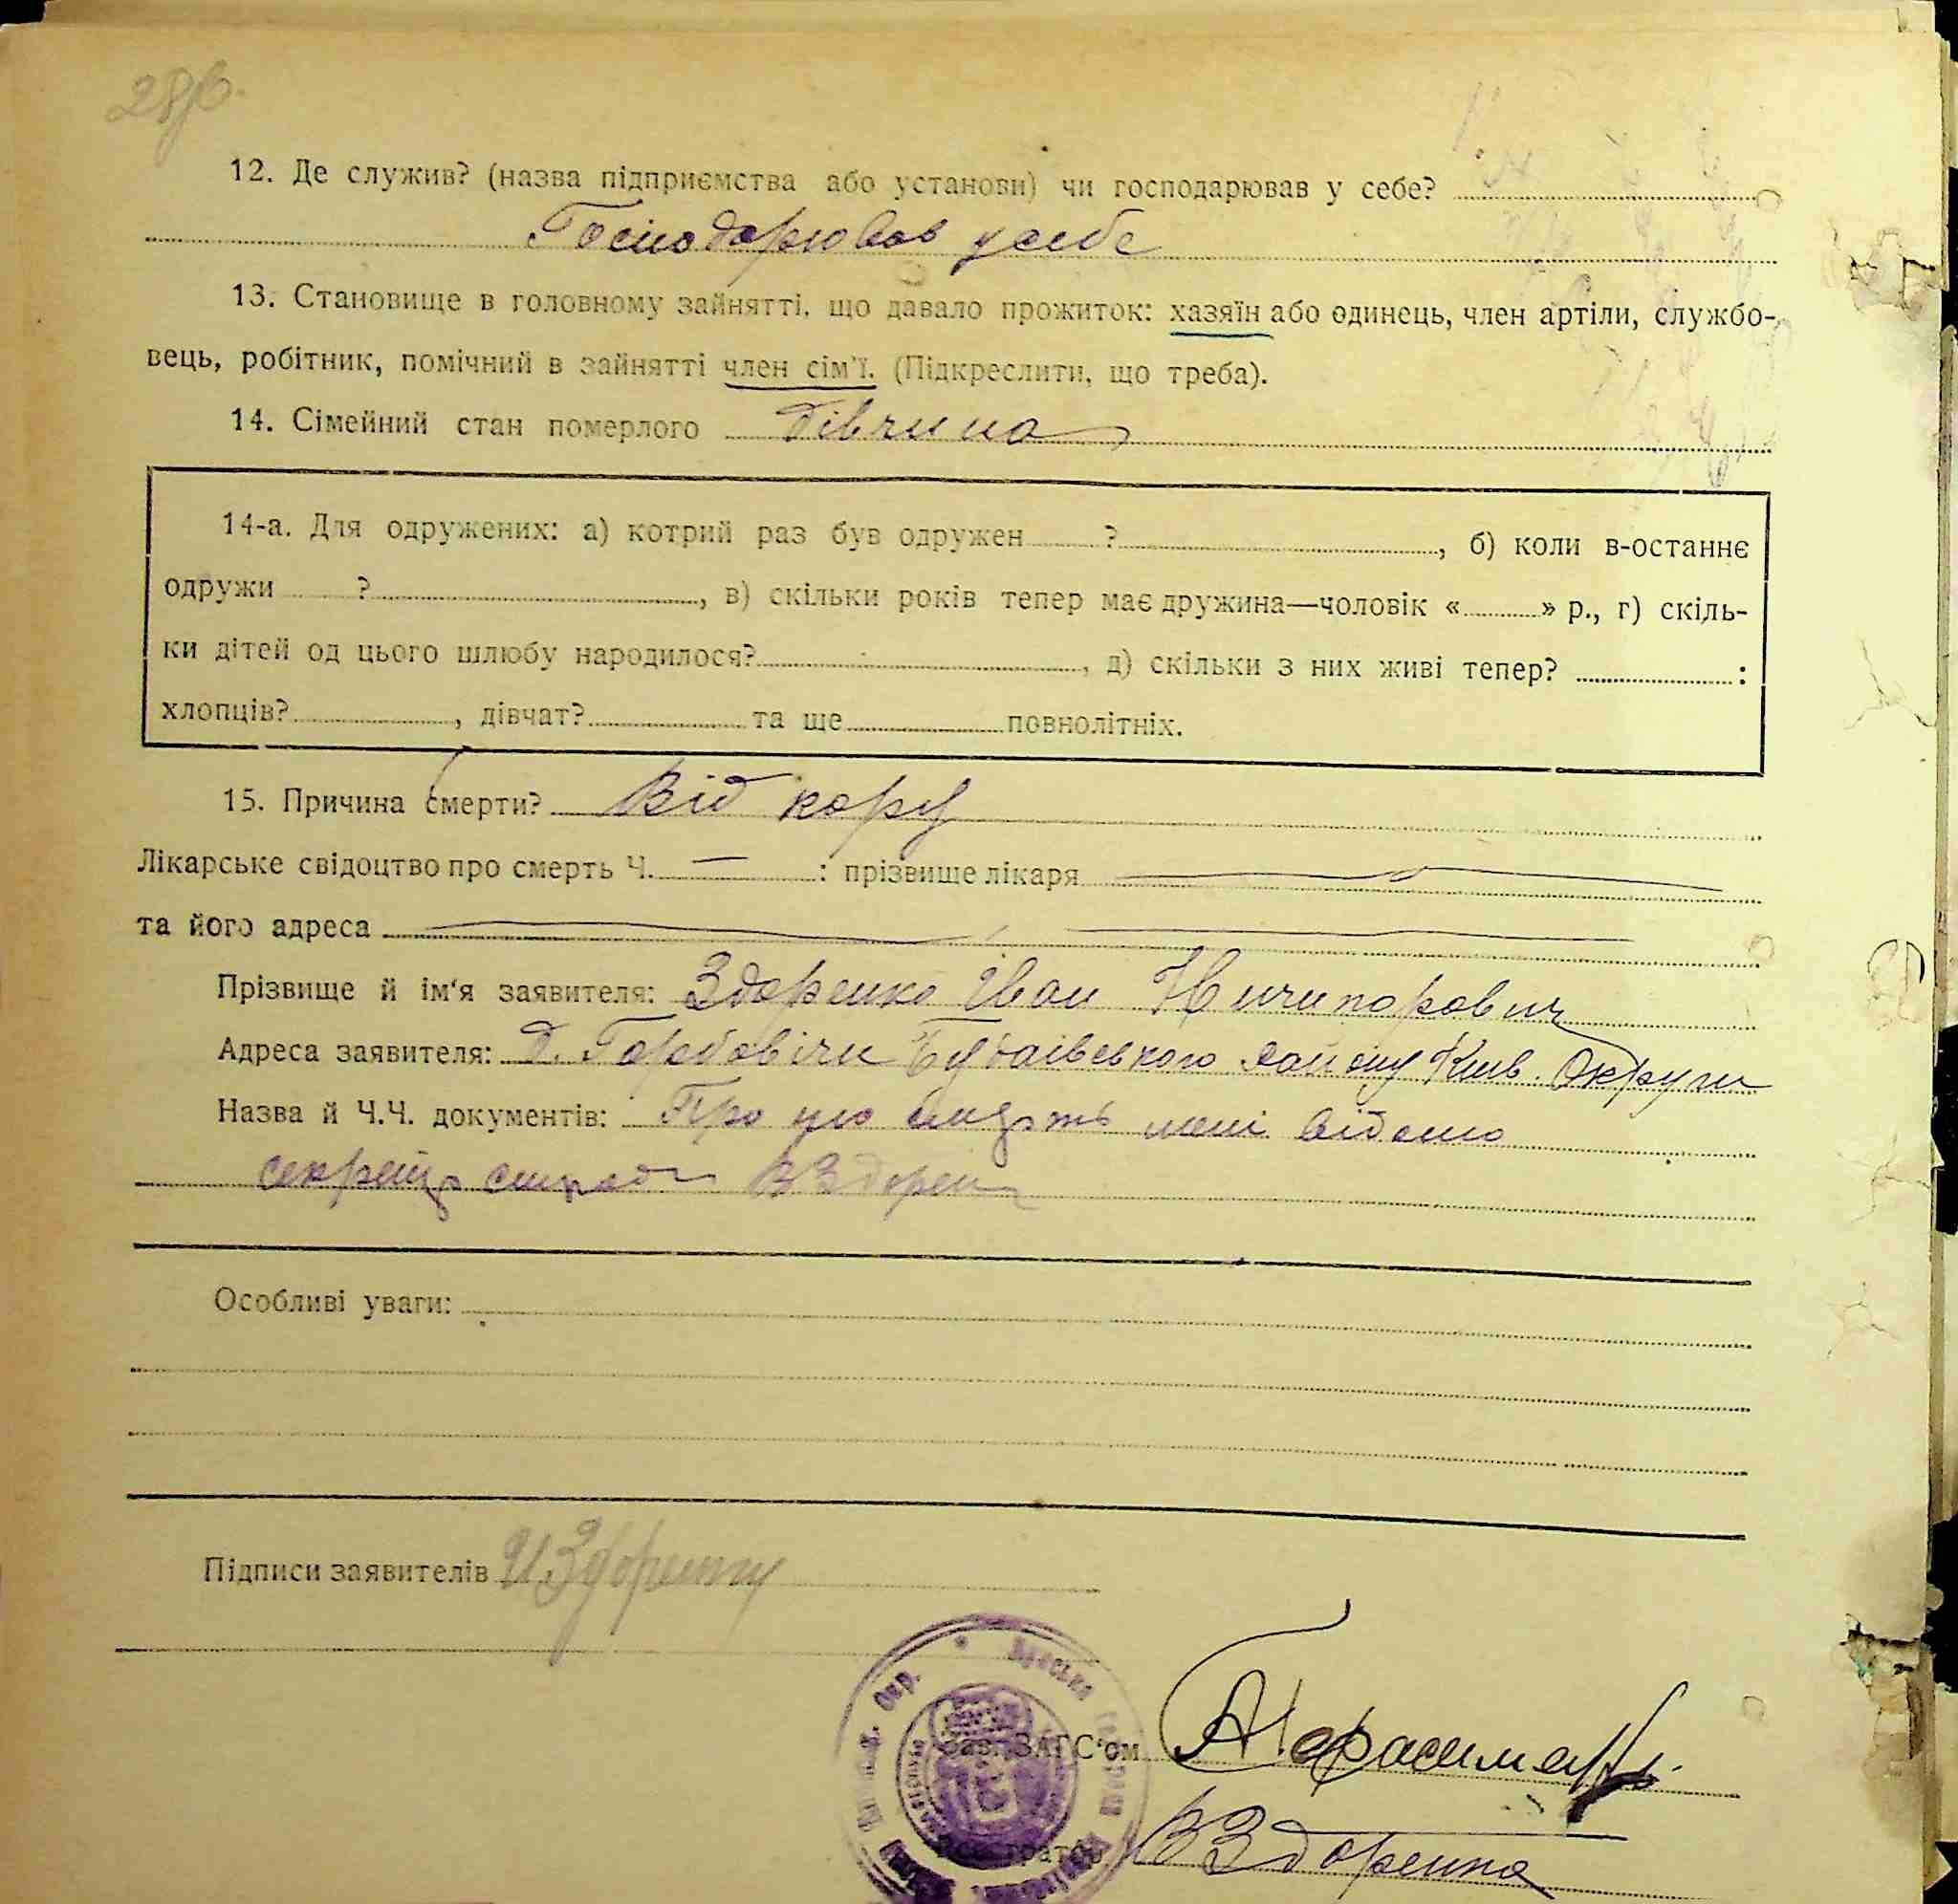 12. Де служив? (назва підприємства або установи) чи господарював у себе?
Господарював у себе
13. Становище в головному зайнятті, що давало прожиток: хазяїн або одинець, член артіли, службо-
вець, робітник, помічний в зайнятті член сім'ї. (Підкреслити, що треба).
14. Сімейний стан померлого Дівчина
14-а. Для одружених: а) котрий раз був одружен ? , б) коли в-останнє
одружи ? , в) скільки років тепер має дружина—чоловік « » р., г) скіль-
ки дітей од цього шлюбу народилося? , д) скільки з них живі тепер? :
хлопців? , дівчат? та ще повнолітніх.
15. Причина смерти? Від кору
Лікарське свідоцтво про смерть Ч. — : прізвище лікаря —
та його адреса —
Прізвище й ім'я заявителя: Здоренко Іван Ничипорович
Адреса заявителя: д. Горбовичи Будаівського району Київ. Округи
Назва й Ч.Ч. документів: Про цю смерть мені відомо
секретар сільради ВЗдорен
Особливі уваги:
Підписи заявителів ИЗдоренк
Окр.
Зав. ЗАГС'ом А Герасим
ВЗдоренко